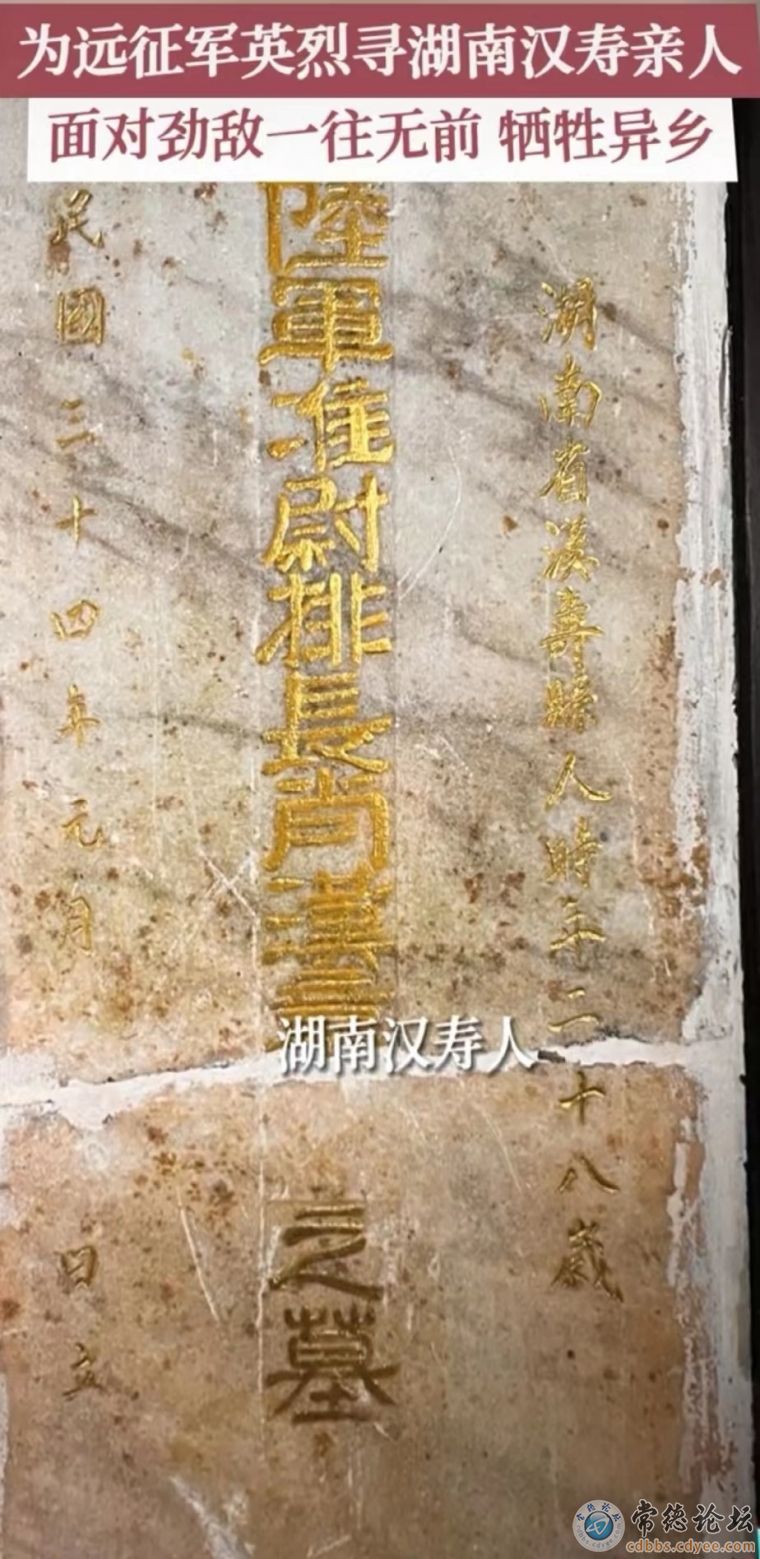 为远征军英烈寻湖南汉寿亲人
面对劲敌一往无前 牺牲异乡
湖南省漢壽縣人時年二十八歲
陸軍准尉排長尚漢
之墓
民國三十四年元月
日立
湖南汉寿人
常德论坛
cdbbs.cdyee.com